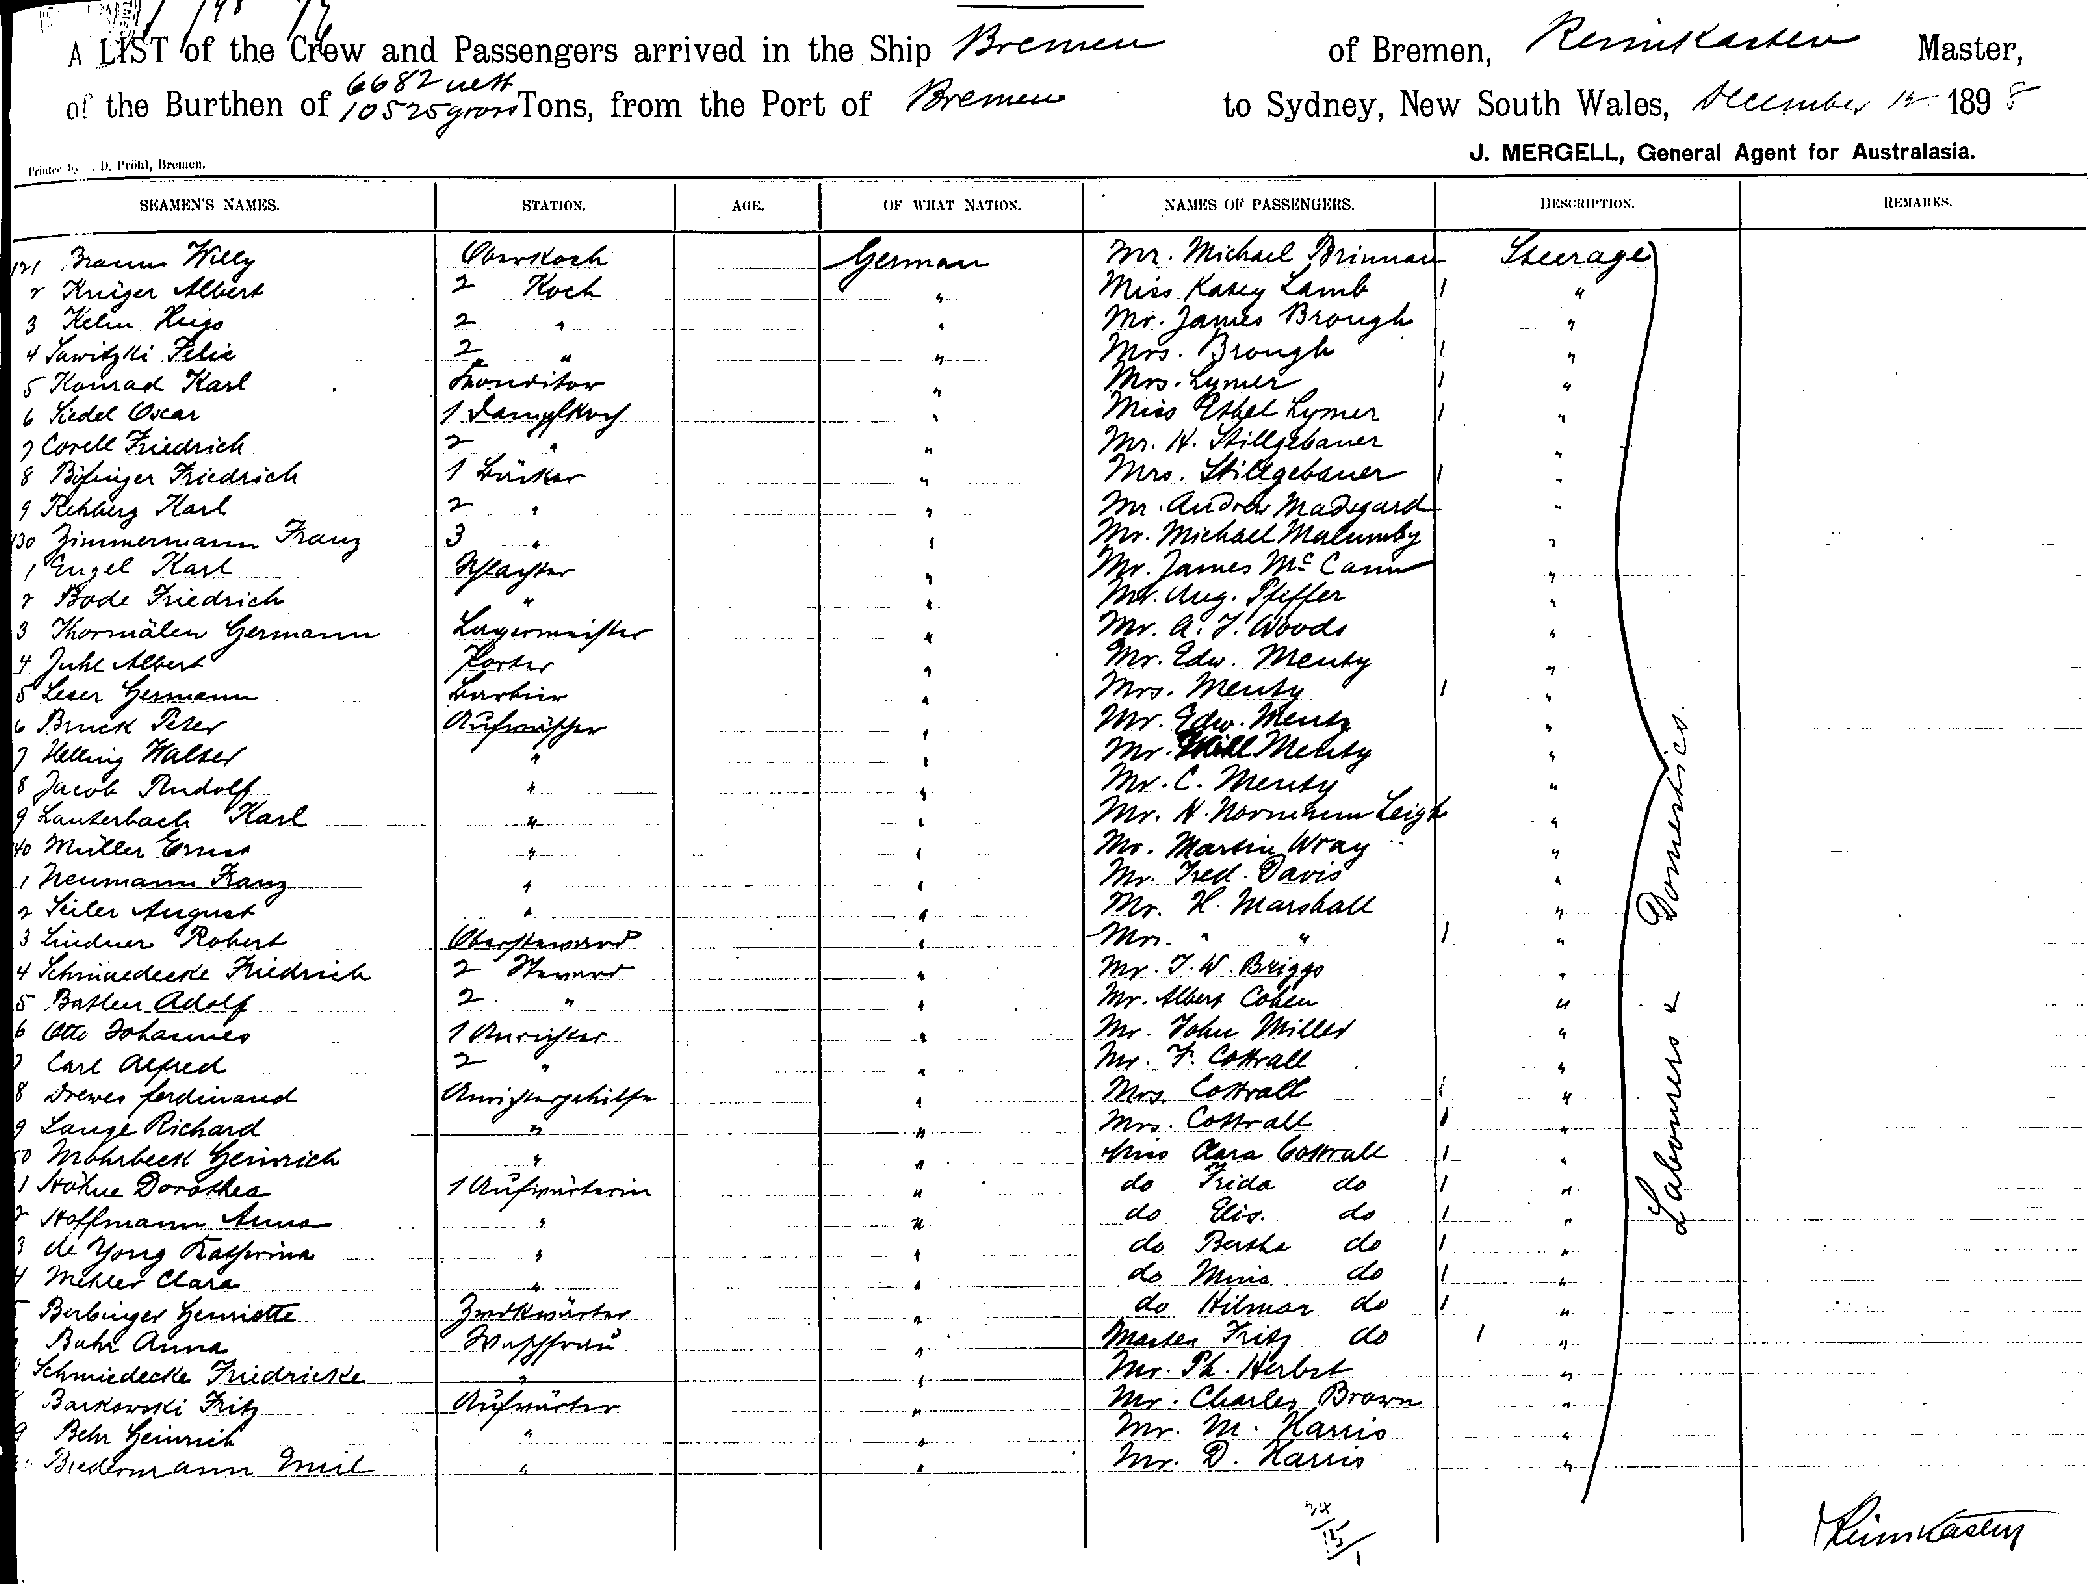 A LIST of the Crew and Passengers arrived in the Ship Bremen of Bremen, Reimkasten Master,
6682 nett
of the Burthen of 10525 gross Tons, from the Port of Bremen to Sydney, New South Wales, December 1898
J. MERGELL, General Agent for Australasia.
Printed by D. Pröhl, Bremen.
SEAMEN'S NAMES. STATION. AGE. OF WHAT NATION. NAMES OF PASSENGERS. DESCRIPTION. REMARKS.
121 Braun Willy Oberkoch German Mr. Michael Brinnan Steerage
2 Krüger Albert 2 Koch " Miss Katey Lamb 1 "
3 Kelm Hugo 2 " " Mr. James Brough "
4 Sawitzki Felix 2 " " Mrs. Brough 1 "
5 Konrad Karl Konditor " Mrs. Lymer 1 "
6 Siedel Oscar 1 Dampfkoch " Miss Ethel Lymer 1 "
7 Corell Friedrich 2 " " Mr. H. Stillgebauer "
8 Friedrich 1 Bäcker " Mrs. Stillgebauer 1 "
9 Rehberg Karl 2 " " Mr. Andrew Madegard "
130 Zimmermann Franz 3 " " Mr. Michael Malumby "
1 Engel Karl Schlachter " Mr. James McCann "
2 Bode Friedrich " " Mr. Aug. Pfeffer "
3 Thormälen Hermann Lagermeister " Mr. A. J. Woods "
4 Juhl Albert Porter " Mr. Edw. Menty "
5 Leser Hermann Barbier " Mrs. Menty 1 "
6 Bruck Peter Aufwäscher " Mr. Edw. Menty "
7 Helling Walter " " Mr. Will Menty "
8 Jacob Rudolf " " Mr. C. Menty "
9 Lauterbach Karl " " Mr. H. Leigh "
40 Müller Ernst " " Mr. Martin Wray "
1 Neumann Franz " " Mr. Fred. Davis "
2 Seiler August " " Mr. H. Marshall "
3 Lindner Robert Obersteward " Mrs. " " 1 "
4 Schmiedecke Friedrich 2 Steward " Mr. J. W. Briggs "
5 Adolf 2 " " Mr. Albert Cohen "
6 Otto Johannes 1 Anrichter " Mr. John Miller "
7 Carl Alfred 2 " " Mr. F. Cottrall "
8 Drewes ferdinand Anrichtergehilfe " Mrs. Cottrall 1 "
9 Lange Richard " " Mrs. Cottrall 1 "
50 Mohrbeck Heinrich " " Miss Clara Cottrall 1 "
1 Höhne Dorothea 1 Aufwärterin " do Frida do 1 "
2 Hoffmann Anna " " do Elis. do 1 "
3 de Yong Katharina " " do Bertha do 1 "
4 Clara " " do do 1 "
5 Berbinger Henriette " do Hilmar do 1 "
Bahr Anna Waschfrau " Master Fritz do 1 "
Schmiedecke Friedricke " " Mr. Ph. Herbst "
Barkowski Fritz Aufwärter " Mr. Charles Brown "
9 Behr Heinrich " " Mr. M. Harris "
Biedermann Emil " " Mr. D. Harris "
Labourers & Domestics.
Reimkasten